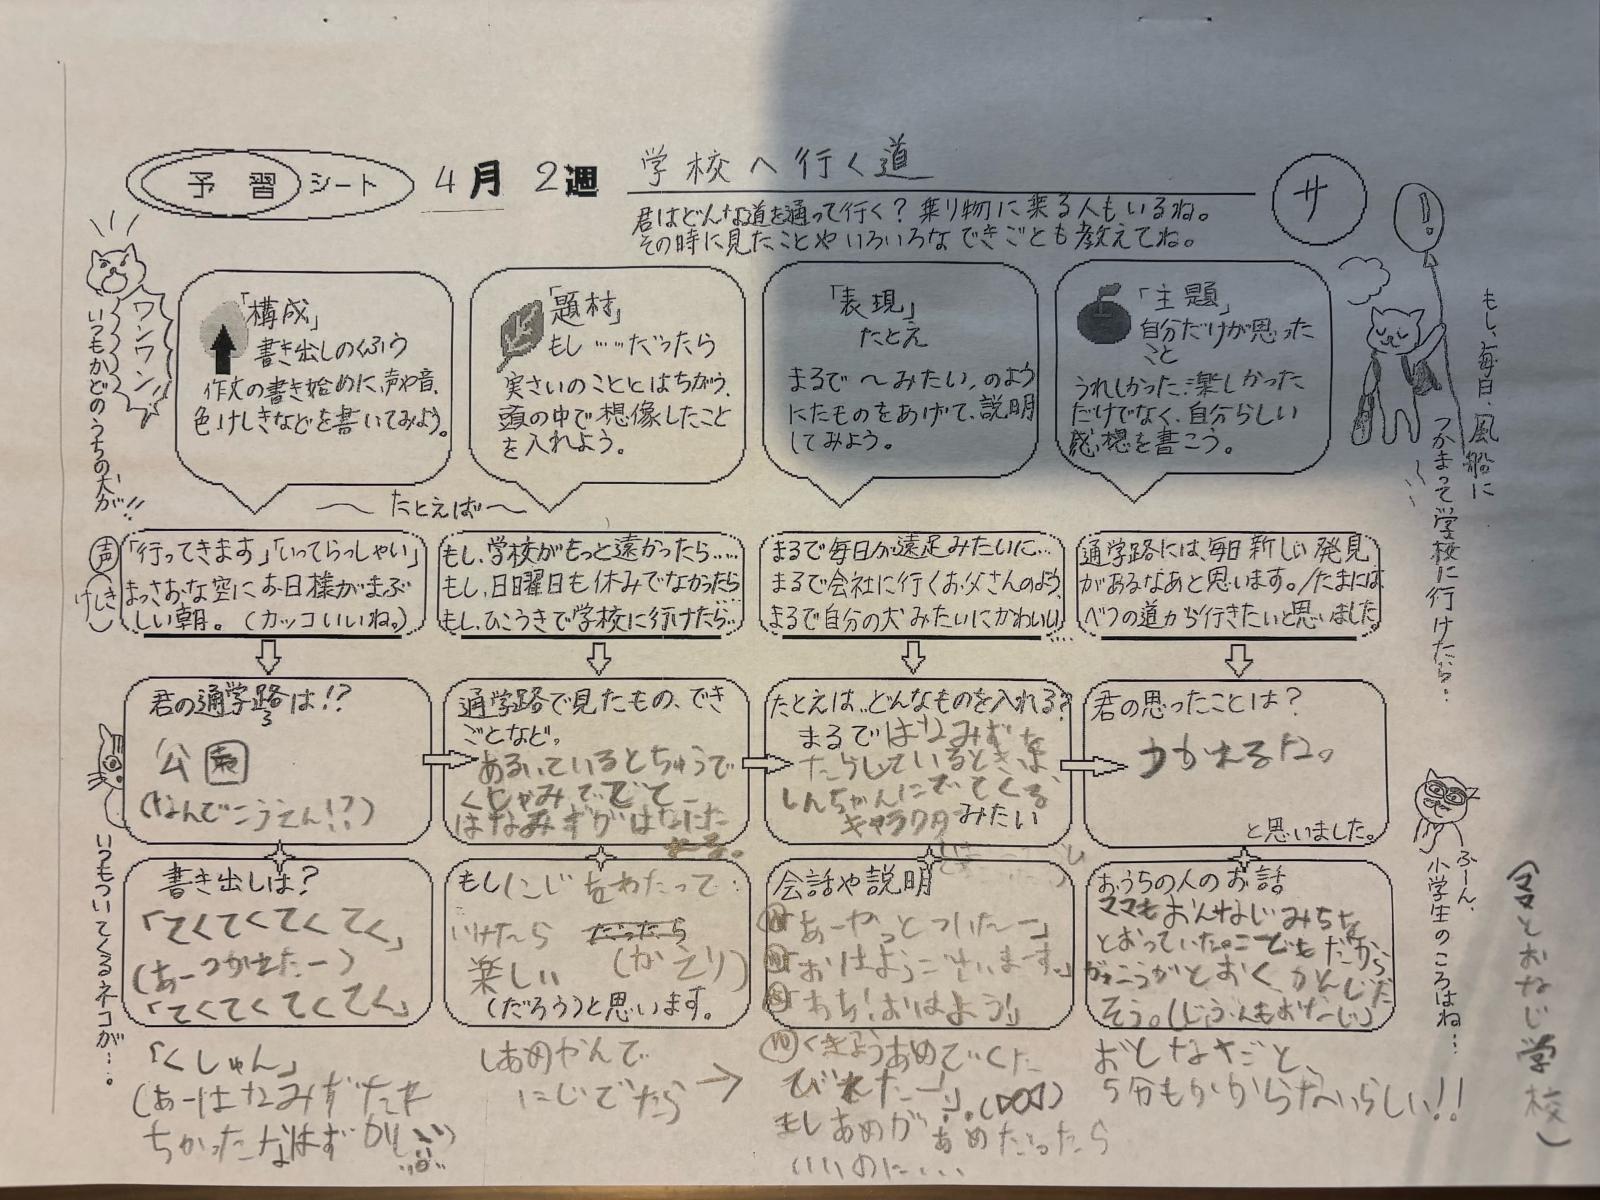 予習シート 4月 2週 学校へ行く道 サ
君はどんな道を通って行く？乗り物に乗る人もいるね。
その時に見たことやいろいろなできごとも教えてね。
ワンワン！
いつもかどのうちの犬が!!
「構成」
書き出しのくふう
作文の書き始めに、声や音、
色、けしきなどを書いてみよう。
「題材」
もし……だったら
実さいのこととはちがう、
頭の中で想像したこと
を入れよう。
「表現」
たとえ
まるで〜みたい、のよう
にたものをあげて、説明
してみよう。
「主題」
自分だけが思った
こと
うれしかった、楽しかった
だけでなく、自分らしい
感想を書こう。
！
もし、毎日、風船に
つかまって学校に行けたら…
〜たとえば〜
声
けしき
「行ってきます」「いってらっしゃい」
まっさおな空にお日様がまぶ
しい朝。（カッコいいね。）
もし、学校がもっと遠かったら……
もし、日曜日も休みでなかったら
もし、ひこうきで学校に行けたら…
まるで毎日が遠足みたいに…
まるで会社に行くお父さんのよう
まるで自分の犬みたいにかわいい
通学路には、毎日新しい発見
があるなあと思います。/たまには
べつの道から行きたいと思いました。
君の通学路は!?
ろ
公園
(なんでこうえん!?)
通学路で見たもの、でき
ごとなど。
あるいているとちゅうで
くしゃみがでて
はなみずがはなたた
たとえは、どんなものを入れる？
まるではなみずを
たらしているときは、
しんちゃんにでてくる
キャラクタみたい
君の思ったことは？
つかれるな。
と思いました。
いつもついてくるネコが…。
書き出しは？
「てくてくてくてく」
(あーつかれたー)
「てくてくてくてく」
「くしゃん」
(あーはなみずたれ
ちかったなはずかしい)
もしにじをわたって
いけたら
楽しい (かえり)
(だろう)と思います。
(あめやんで
にじでたら →
会話や説明
「あーやっとついたー」
「おはようございます。」
「わっ！おはよう！」
「くきょうあめでくた
びれたー」
もしあめがあめだったら
いいのに...
おうちの人のお話
ママもおんなじみちを
とおっていた。こどもだから
がっこうがとおく、かんじた
そう。(じぶんもおなーじ)
おとなさごと、
5分もかからないらしい!!
ふーん、
小学生のころはね…
(ママとおなじ学校)